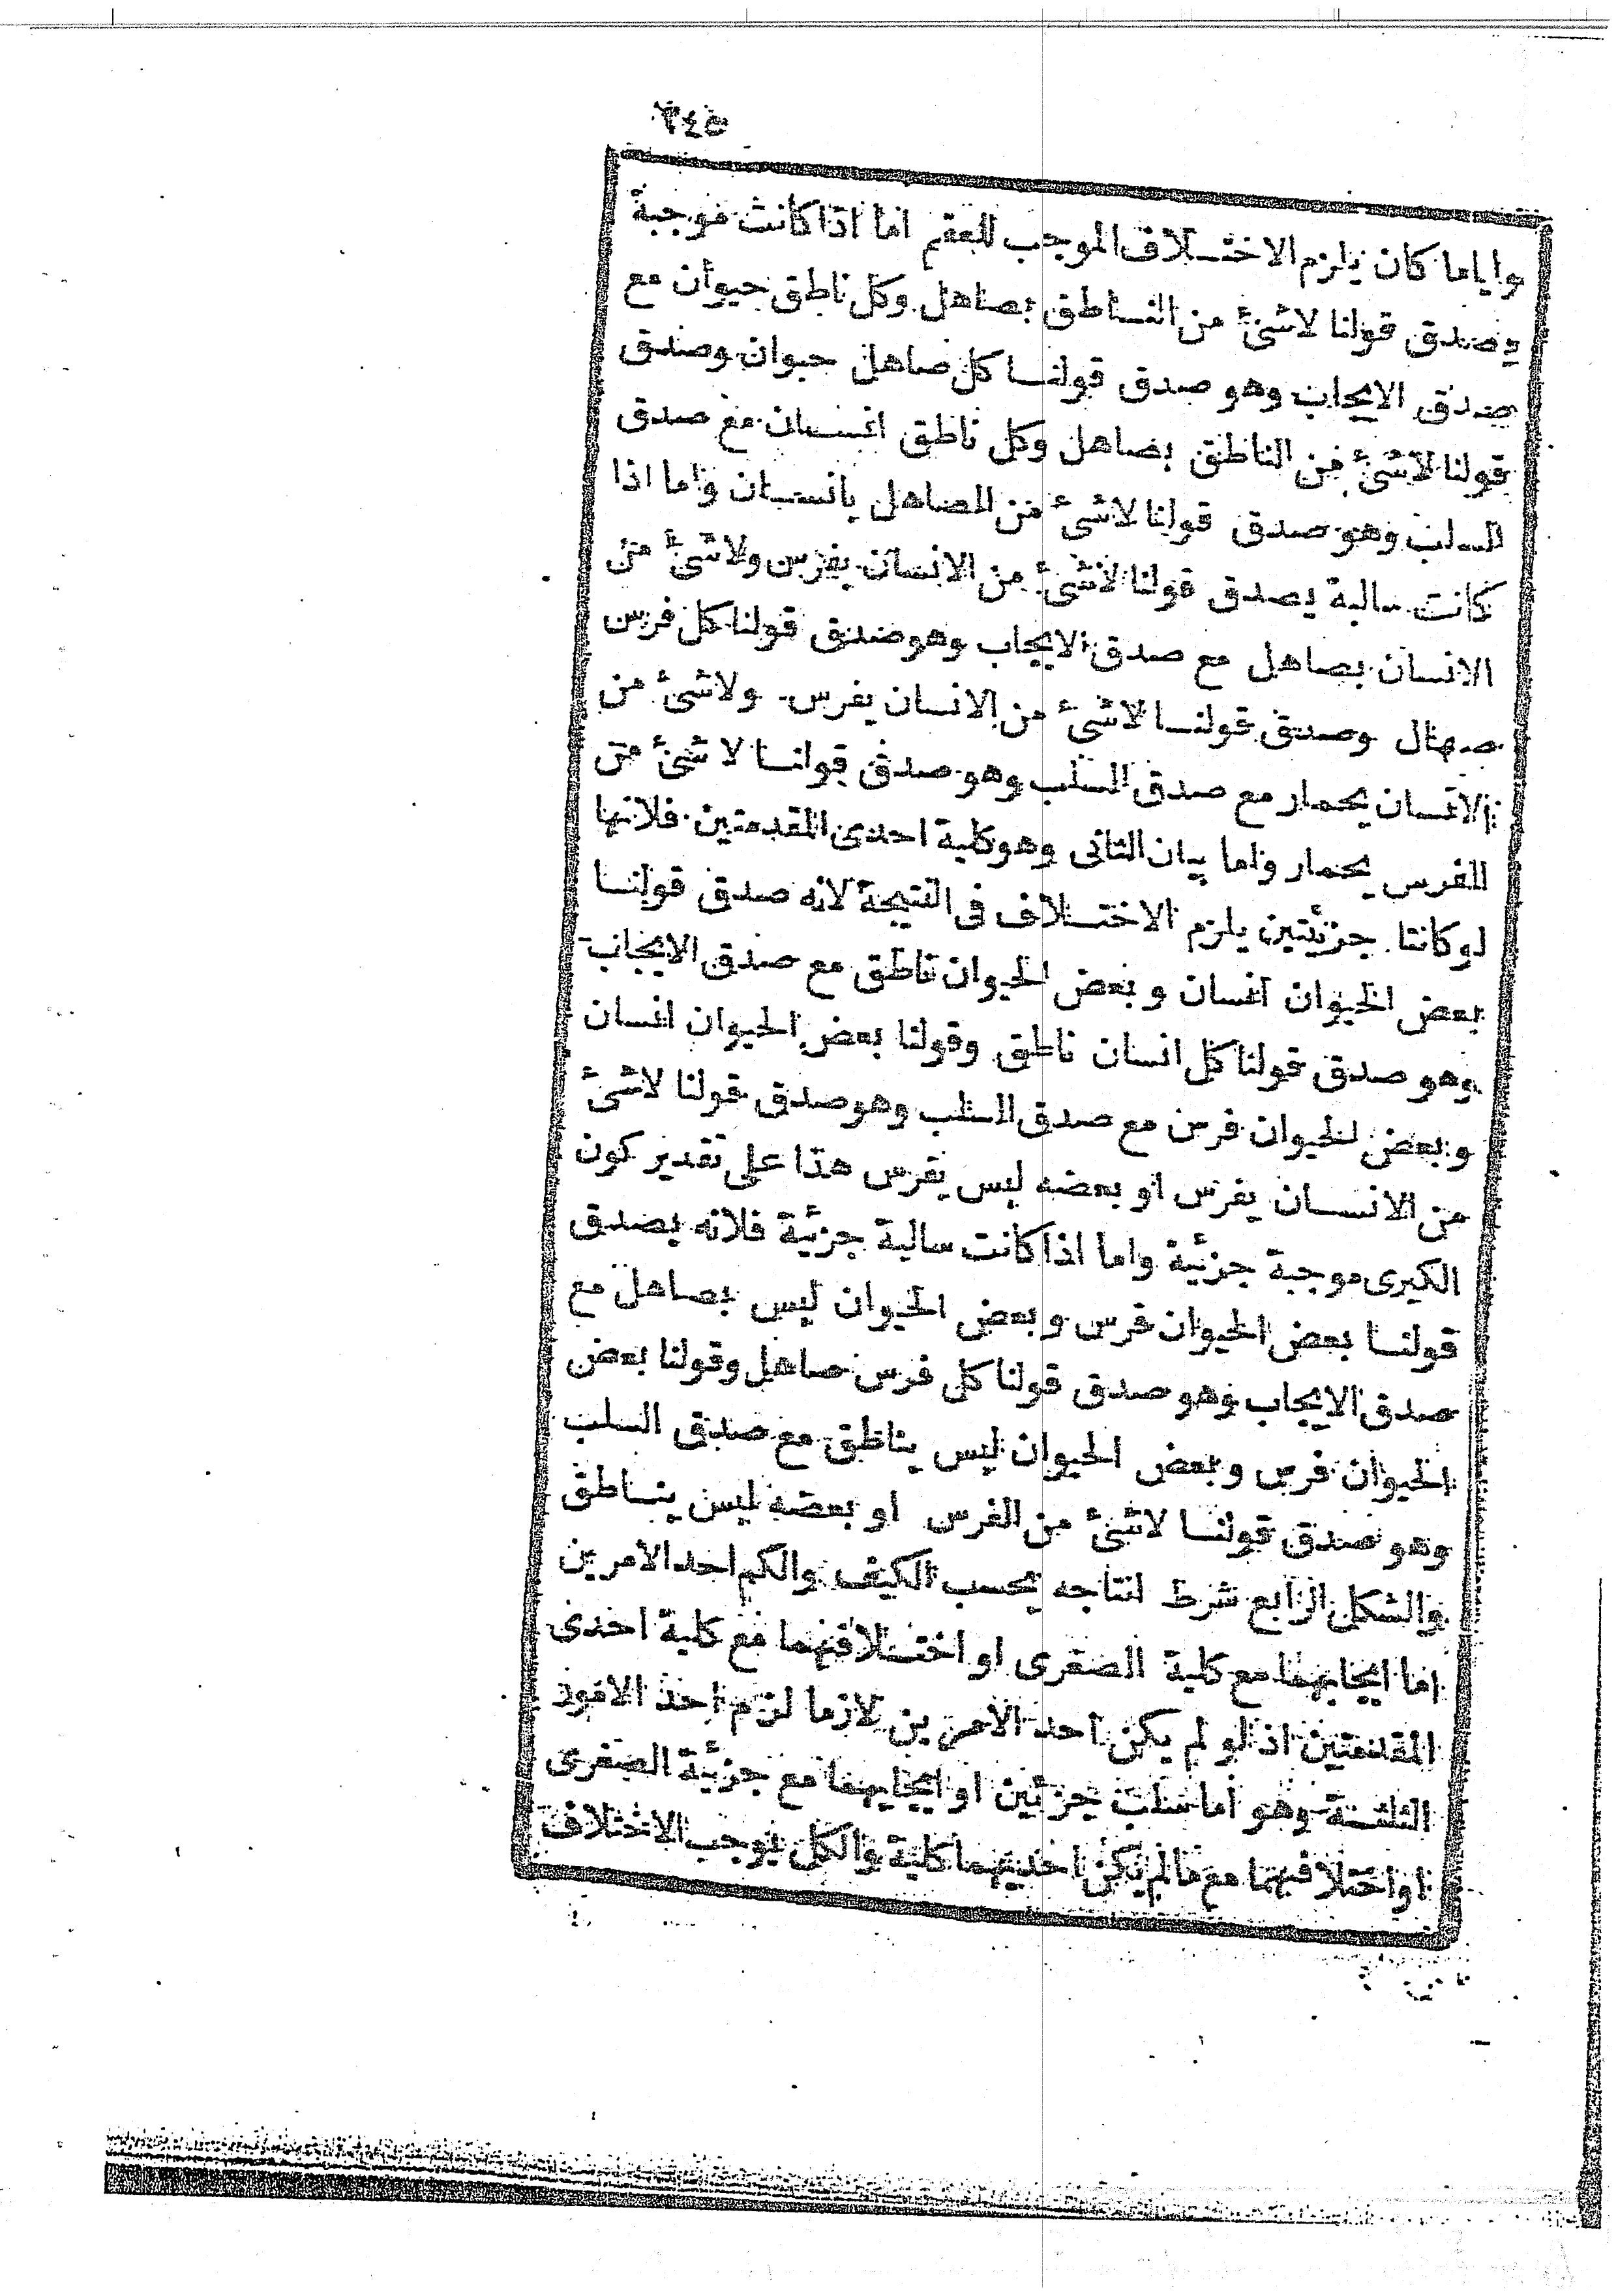 واياما كان يلزم الاختلاف الموجب للعقم اما اذا كانت موجبة
يصدق قولنا لاشئ من الناطق بصاهل وكل ناطق حيوان مع
صدق الايجاب وهو صدق قولنا كل صاهل حيوان وصدق
قولنا لاشئ من الناطق بصاهل وكل ناطق انسان مع صدق
السلب وهو صدق قولنا لاشئ من الصاهل بانسان واما اذا
كانت سالبة يصدق قولنا لاشئ من الانسان بفرس ولاشئ من
الانسان بصاهل مع صدق الايجاب وهو صدق قولنا كل فرس
صهال وصدق قولنا لاشئ من الانسان بفرس ولاشئ من
الانسان بحمار مع صدق السلب وهو صدق قولنا لا شئ من
الفرس بحمار واما بيان الثانى وهو كلية احدى المقدمتين فلانها
لو كانتا جزئيتين يلزم الاختلاف فى النتيجة لانه صدق قولنا
بعض الحيوان انسان وبعض الحيوان ناطق مع صدق الايجاب
وهو صدق قولنا كل انسان ناطق وقولنا بعض الحيوان انسان
وبعض الحيوان فرس مع صدق السلب وهو صدق قولنا لاشئ
من الانسان بفرس او بعضه ليس بفرس هذا على تقدير كون
الكبرى موجبة جزئية واما اذا كانت سالبة جزئية فلانه يصدق
قولنا بعض الحيوان فرس وبعض الحيوان ليس بصاهل مع
صدق الايجاب وهو صدق قولنا كل فرس صاهل وقولنا بعض
الحيوان فرس وبعض الحيوان ليس بناطق مع صدق السلب
وهو صدق قولنا لاشئ من الفرس او بعضه ليس بناطق
والشكل الرابع شرط انتاجه بحسب الكيف والكم احد الامرين
اما ايجابهما مع كلية الصغرى او اختلافهما مع كلية احدى
المقدمتين اذ لو لم يكن احد الامرين لازما لزم احد الامور
الثلثة وهو اما سلب جزئين او ايجابهما مع جزئية الصغرى
او اختلافهما مع مالم يكن احديهما كلية والكل يوجب الاختلاف